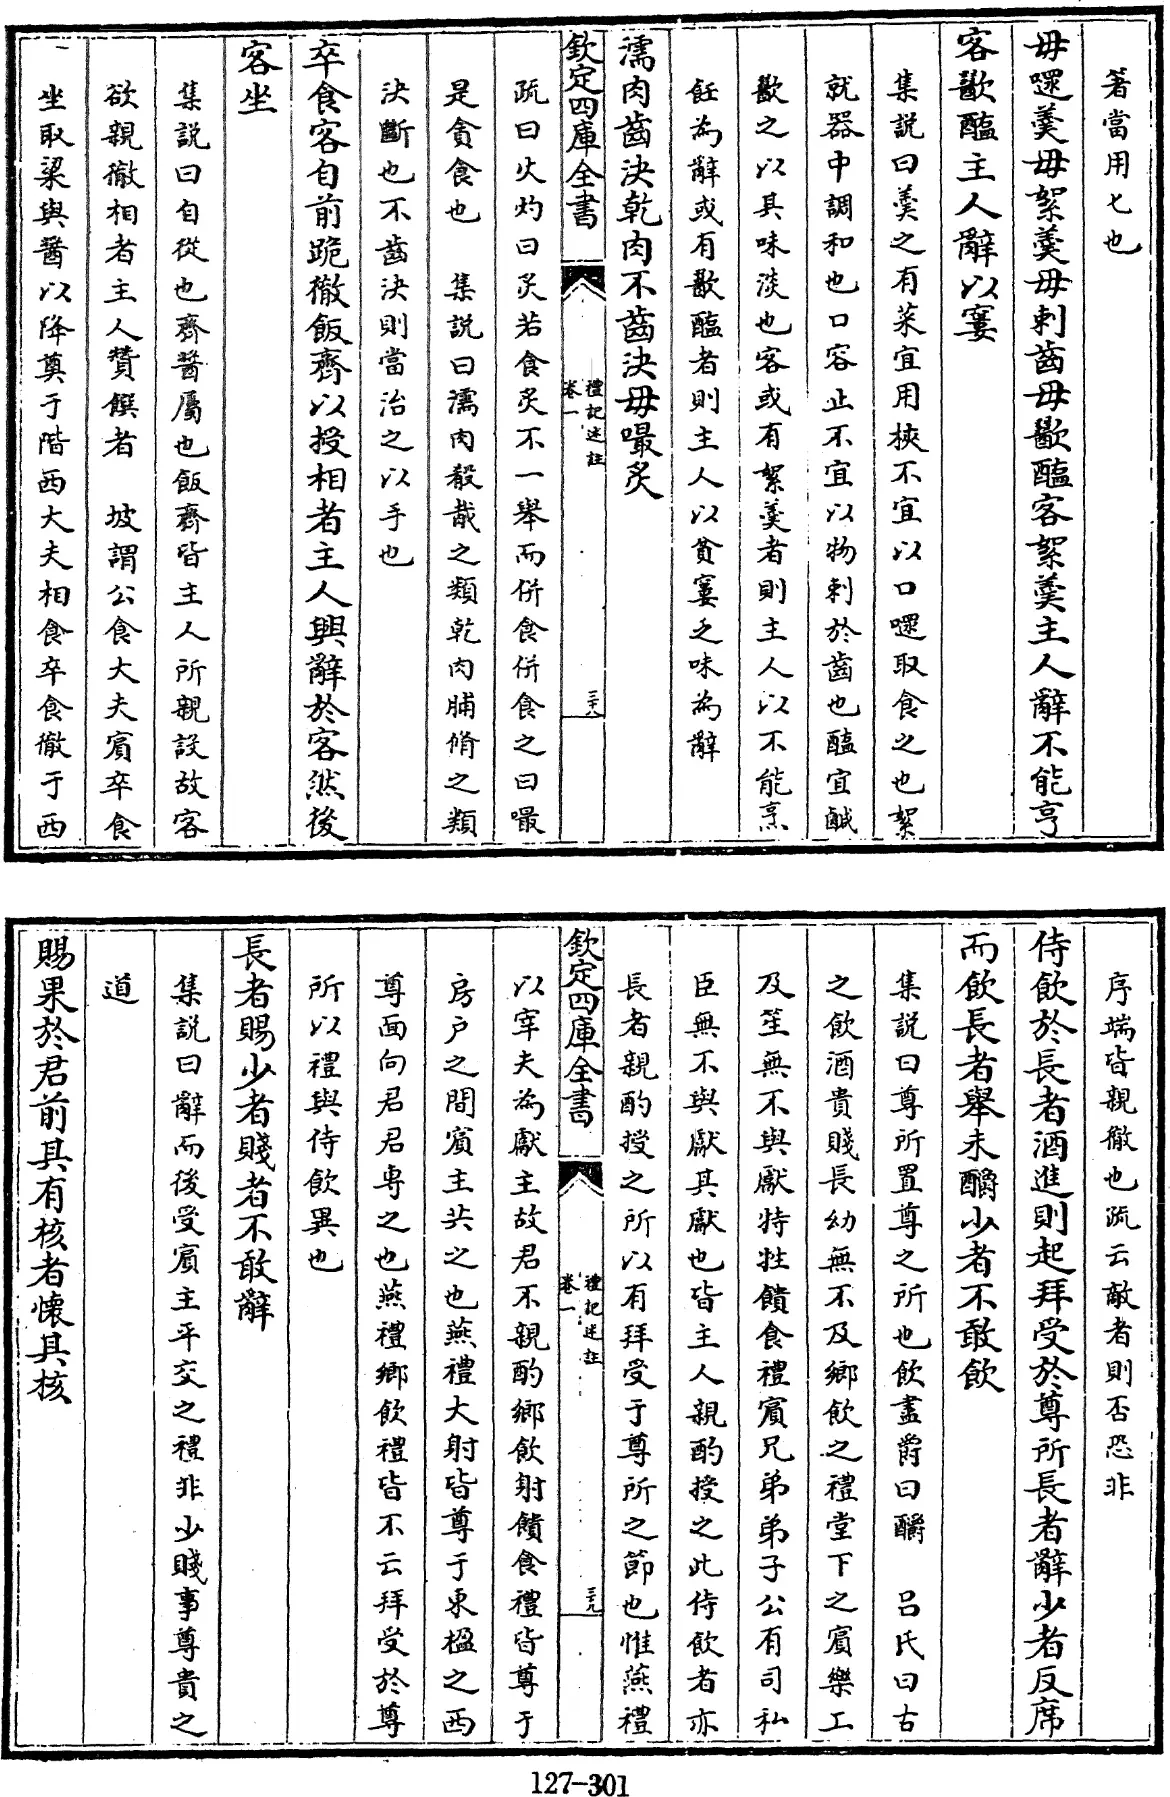 著當用匕也
毋嚃羹毋絮羹毋刺齒毋歠醢客絮羹主人辭不能亨
客歠醢主人辭以窶
集說曰羹之有菜宜用梜不宜以口嚃取食之也絮
就器中調和也口容止不宜以物刺於齒也醢宜鹹
歠之以其味淡也客或有絮羹者則主人以不能烹
飪為辭或有歠醢者則主人以貧窶乏味為辭
濡肉齒決乾肉不齒決毋嘬炙
欽定四庫全書
禮記述註
卷一
三十八
疏曰火灼曰炙若食炙不一舉而併食併食之曰嘬
是貪食也 集說曰濡肉殽胾之類乾肉脯脩之類
決斷也不齒決則當治之以手也
卒食客自前跪徹飯齊以授相者主人興辭於客然後
客坐
集說曰自從也齊醬屬也飯齊皆主人所親設故客
欲親徹相者主人贊饌者 坡謂公食大夫賓卒食
坐取粱與醬以降奠于階西大夫相食卒食徹于西
序端皆親徹也疏云敵者則否恐非
侍飲於長者酒進則起拜受於尊所長者辭少者反席
而飲長者舉未釂少者不敢飲
集說曰尊所置尊之所也飲盡爵曰釂 呂氏曰古
之飲酒貴賤長幼無不及鄉飲之禮堂下之賓樂工
及笙無不與獻特牲饋食禮賓兄弟弟子公有司私
臣無不與獻其獻也皆主人親酌授之此侍飲者亦
長者親酌授之所以有拜受于尊所之節也惟燕禮
欽定四庫全書
禮記述註
卷一
三十九
以宰夫為獻主故君不親酌鄉飲射饋食禮皆尊于
房户之間賓主共之也燕禮大射皆尊于東楹之西
尊面向君君專之也燕禮鄉飲禮皆不云拜受於尊
所以禮與侍飲異也
長者賜少者賤者不敢辭
集說曰辭而後受賓主平交之禮非少賤事尊貴之
道
賜果於君前其有核者懷其核
127-301